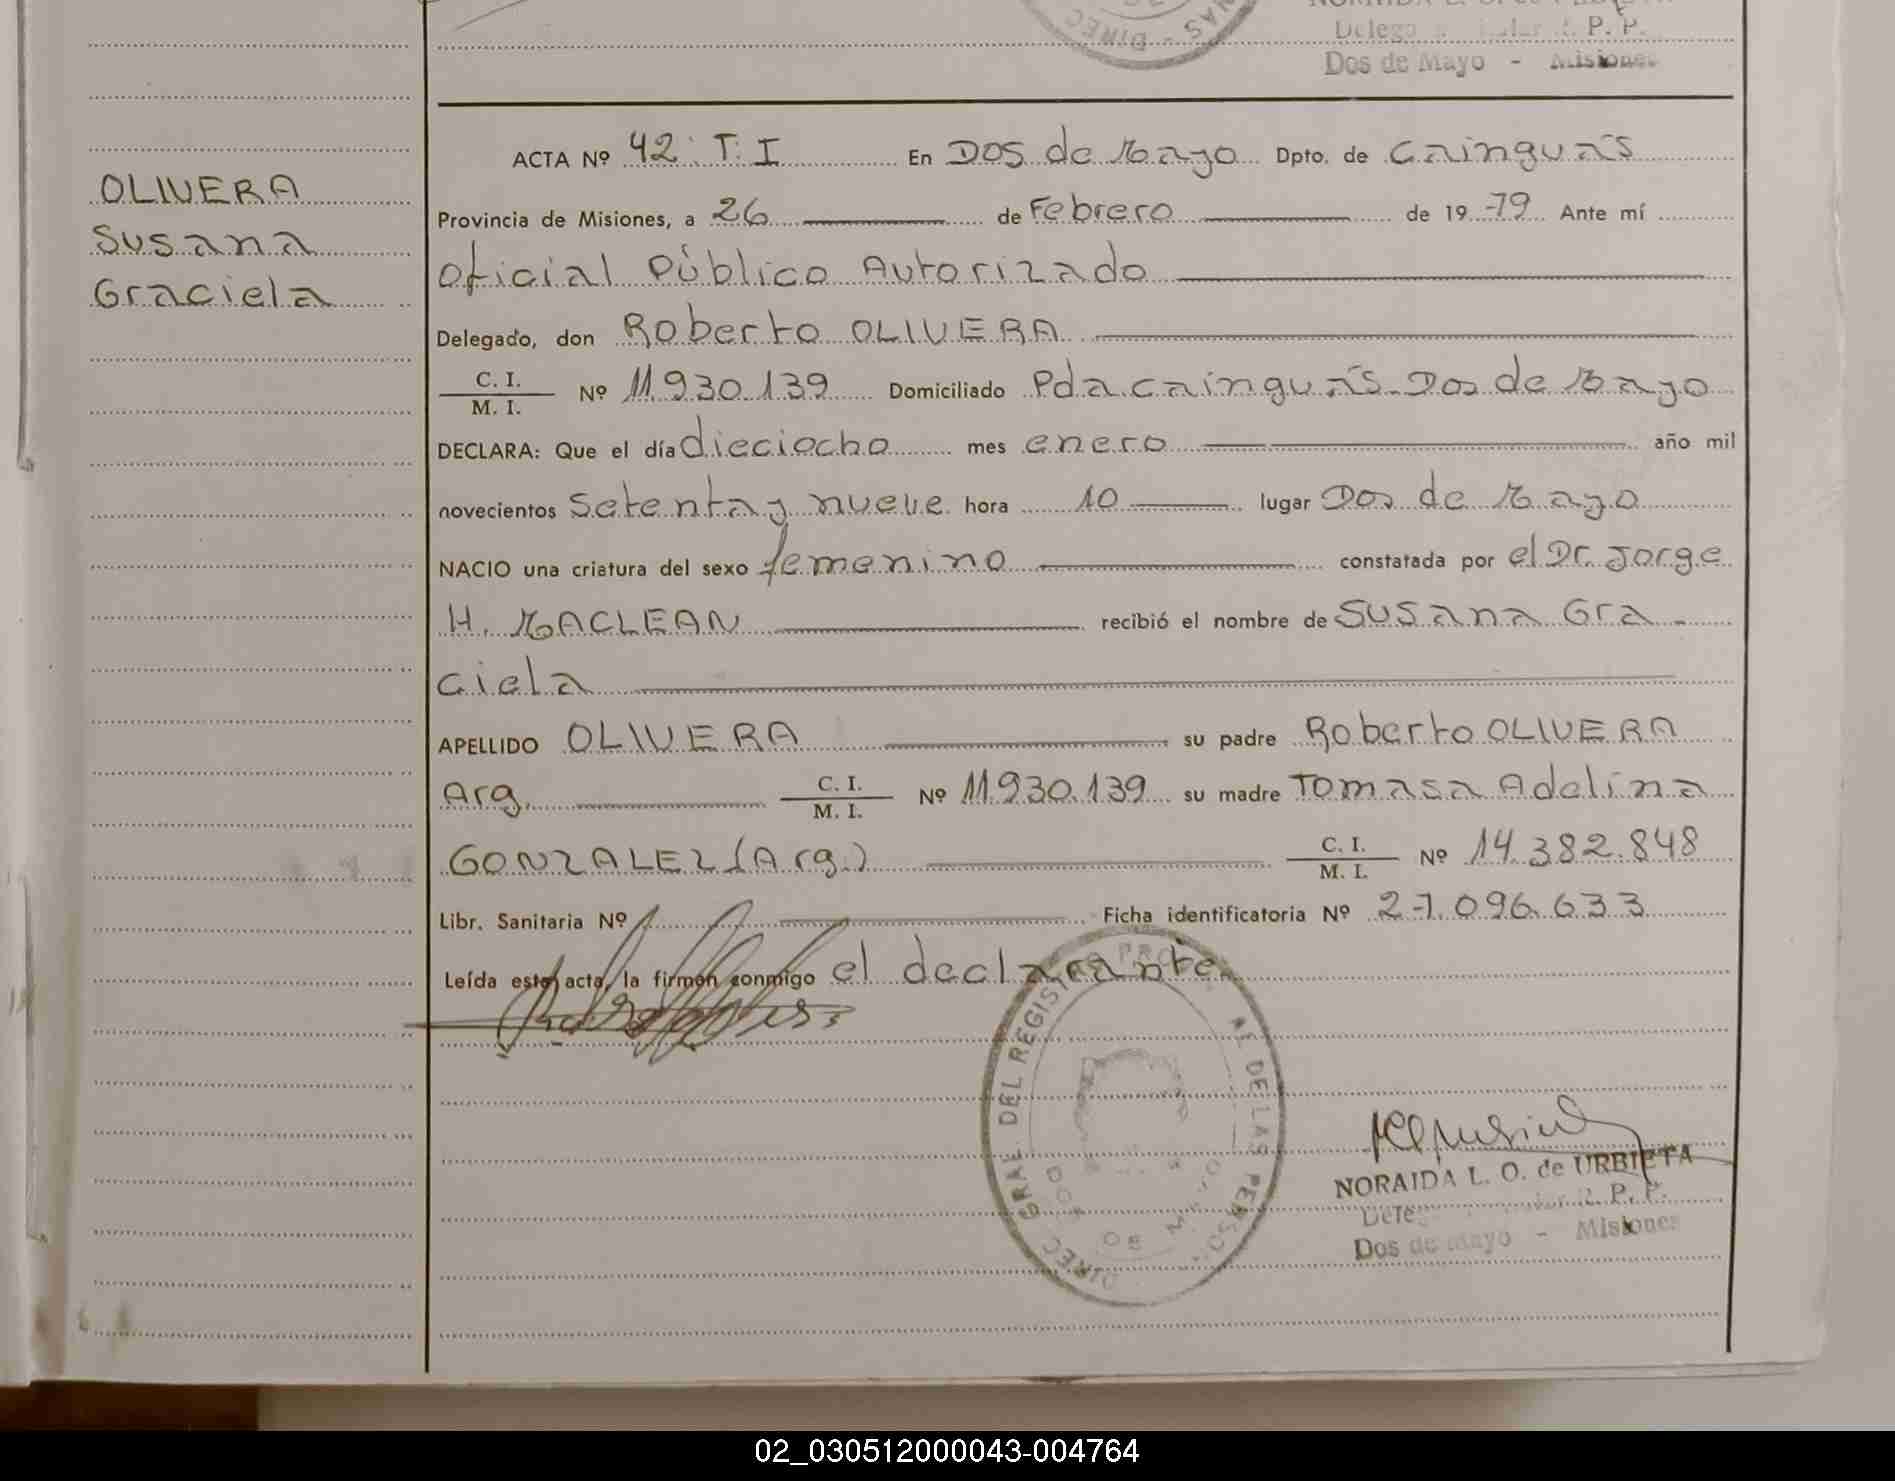 P. P.
Dos de Mayo - Misiones
ACTA Nº 42. T. I En Dos de Mayo Dpto. de Cainguás
OLIVERA
Provincia de Misiones, a 26 de Febrero de 19 79 Ante mí
Susana
Oficial Público Autorizado
Graciela
Delegado, don Roberto OLIVERA
C. I.
M. I. Nº 11.930.139 Domiciliado Pda Cainguás - Dos de Mayo
DECLARA: Que el día dieciocho mes enero año mil
novecientos setenta y nueve hora 10 lugar Dos de Mayo
NACIO una criatura del sexo femenino constatada por el Dr. Jorge
H. MACLEAN recibió el nombre de Susana Gra-
ciela
APELLIDO OLIVERA su padre Roberto OLIVERA
Arg. C. I.
M. I. Nº 11.930.139 su madre Tomasa Adelina
GONZALEZ (Arg.) C. I.
M. I. Nº 14.382.848
Libr. Sanitaria Nº Ficha identificatoria Nº 27.096.633
Leída esta acta, la firman conmigo el declarante.
DIREC GRAL DEL REGISTRO PROV DE LAS PERSO
DOS DE MAYO
NORAIDA L. O. de URBIETA
P. P.
Dos de Mayo - Misiones
02_030512000043-004764